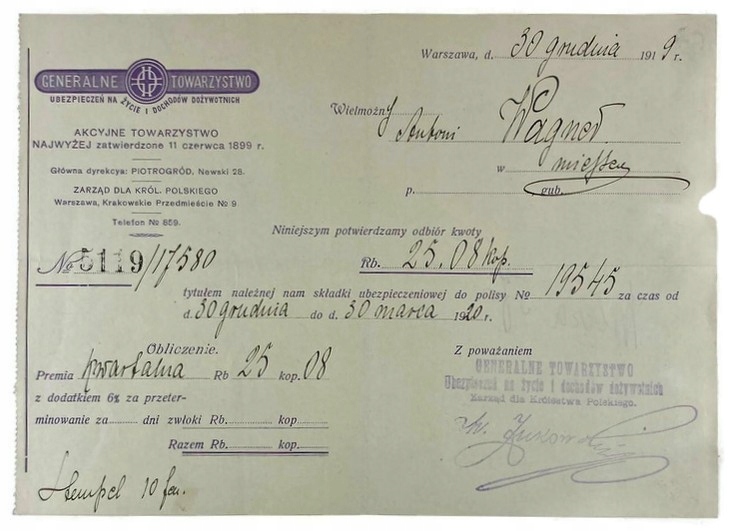 GENERALNE TOWARZYSTWO
UBEZPIECZEŃ NA ŻYCIE I DOCHODÓW DOŻYWOTNICH
AKCYJNE TOWARZYSTWO
NAJWYŻEJ zatwierdzone 11 czerwca 1899 r.
Główna dyrekcya: PIOTROGRÓD, Newski 28.
ZARZĄD DLA KRÓL. POLSKIEGO
Warszawa, Krakowskie Przedmieście № 9.
Telefon № 859.
Warszawa, d. 30 grudnia 1919 r.
Wielmożny
Antoni Wagner
w miejscu
p. gub.
Niniejszym potwierdzamy odbiór kwoty
№ 5119/17580 Rb. 25.08 kop.
tytułem należnej nam składki ubezpieczeniowej do polisy № 19545 za czas od
d. 30 grudnia do d. 30 marca 1920 r.
Obliczenie.
Premia kwartalna Rb 25 kop. 08
z dodatkiem 6% za przeter-
minowanie za dni zwłoki Rb. kop.
Razem Rb. kop.
Stempel 10 fen.
Z poważaniem
GENERALNE TOWARZYSTWO
Ubezpieczeń na życie i dochodów dożywotnich
Zarząd dla Królestwa Polskiego.